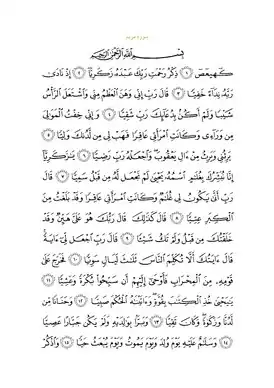 سورة مريم
بِسْمِ اللَّهِ الرَّحْمَٰنِ الرَّحِيمِ
كٓهيعٓصٓ ١ ذِكْرُ رَحْمَتِ رَبِّكَ عَبْدَهُ زَكَرِيَّآ ٢ إِذْ نَادَىٰ
رَبَّهُ نِدَآءً خَفِيًّا ٣ قَالَ رَبِّ إِنِّي وَهَنَ الْعَظْمُ مِنِّي وَاشْتَعَلَ الرَّأْسُ
شَيْبًا وَلَمْ أَكُنۢ بِدُعَآئِكَ رَبِّ شَقِيًّا ٤ وَإِنِّي خِفْتُ الْمَوَٰلِيَ
مِن وَرَآءِي وَكَانَتِ امْرَأَتِي عَاقِرًا فَهَبْ لِي مِن لَّدُنكَ وَلِيًّا ٥
يَرِثُنِي وَيَرِثُ مِنْ ءَالِ يَعْقُوبَ وَاجْعَلْهُ رَبِّ رَضِيًّا ٦ يَٰزَكَرِيَّآ
إِنَّا نُبَشِّرُكَ بِغُلَٰمٍ اسْمُهُ يَحْيَىٰ لَمْ نَجْعَل لَّهُ مِن قَبْلُ سَمِيًّا ٧ قَالَ
رَبِّ أَنَّىٰ يَكُونُ لِي غُلَٰمٌ وَكَانَتِ امْرَأَتِي عَاقِرًا وَقَدْ بَلَغْتُ مِنَ
الْكِبَرِ عِتِيًّا ٨ قَالَ كَذَٰلِكَ قَالَ رَبُّكَ هُوَ عَلَيَّ هَيِّنٌ وَقَدْ
خَلَقْتُكَ مِن قَبْلُ وَلَمْ تَكُ شَيْئًا ٩ قَالَ رَبِّ اجْعَل لِّي ءَايَةً
قَالَ ءَايَتُكَ أَلَّا تُكَلِّمَ النَّاسَ ثَلَٰثَ لَيَالٍ سَوِيًّا ١٠ فَخَرَجَ عَلَىٰ
قَوْمِهِ مِنَ الْمِحْرَابِ فَأَوْحَىٰٓ إِلَيْهِمْ أَن سَبِّحُوا بُكْرَةً وَعَشِيًّا ١١
يَٰيَحْيَىٰ خُذِ الْكِتَٰبَ بِقُوَّةٍ وَءَاتَيْنَٰهُ الْحُكْمَ صَبِيًّا ١٢ وَحَنَانًا مِّن
لَّدُنَّا وَزَكَوٰةً وَكَانَ تَقِيًّا ١٣ وَبَرًّۢا بِوَٰلِدَيْهِ وَلَمْ يَكُن جَبَّارًا عَصِيًّا
١٤ وَسَلَٰمٌ عَلَيْهِ يَوْمَ وُلِدَ وَيَوْمَ يَمُوتُ وَيَوْمَ يُبْعَثُ حَيًّا ١٥ وَاذْكُرْ